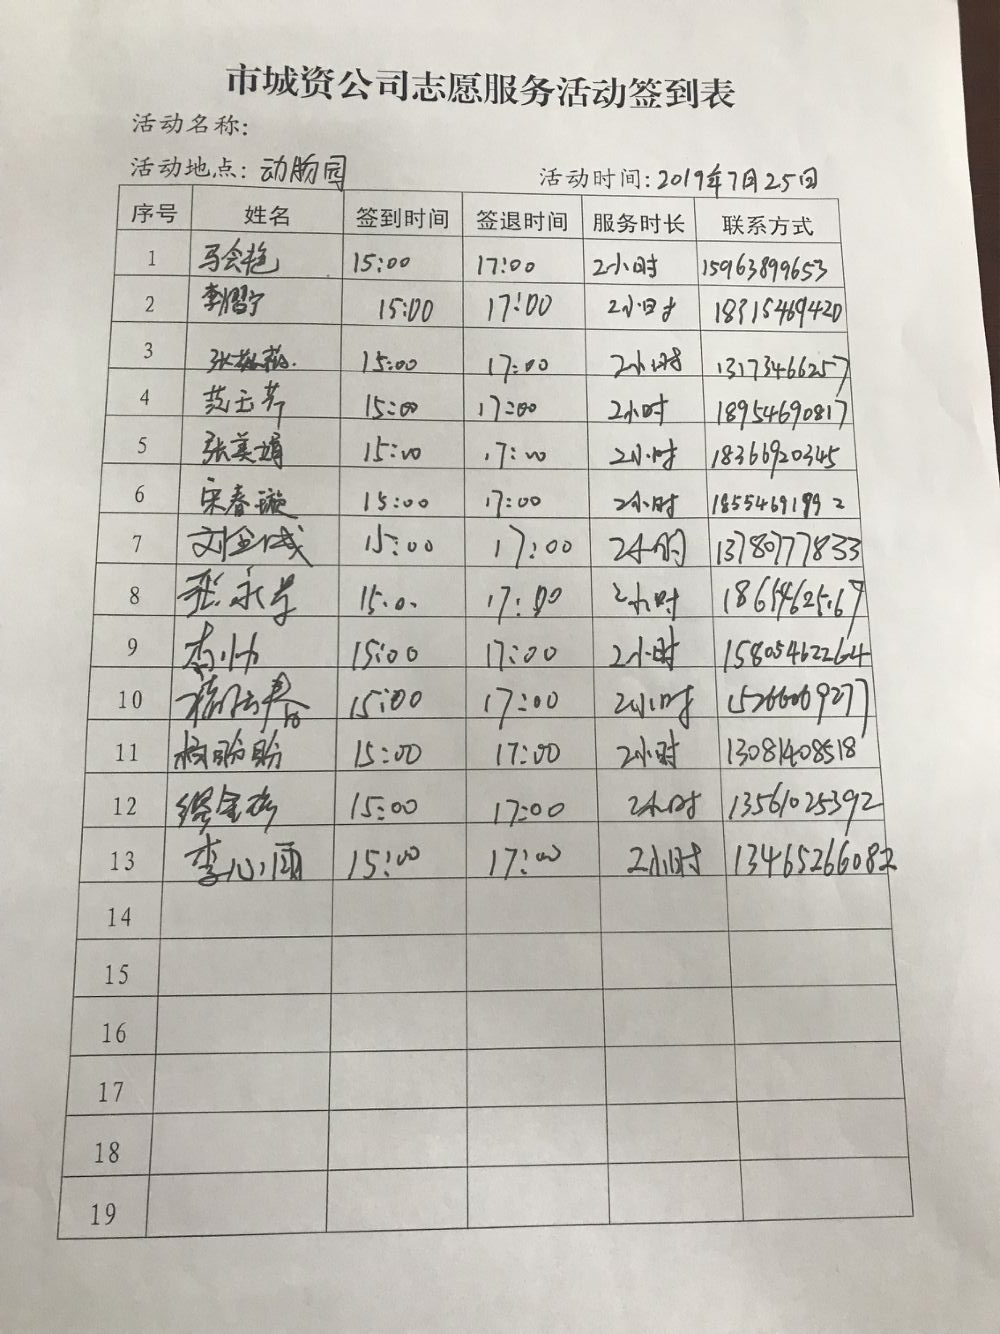 市城资公司志愿服务活动签到表
活动名称:
活动地点: 动物园 活动时间: 2019年7月25日
序号 姓名 签到时间 签退时间 服务时长 联系方式
1 马会艳 15:00 17:00 2小时 15963899653
2 15:00 17:00 2小时 18315469420
3 15:00 17:00 2小时 13173466257
4 范玉芹 15:00 17:00 2小时 18954690817
5 张美娟 15:00 17:00 2小时 18366920345
6 宋春璇 15:00 17:00 2小时 18554691992
7 刘金成 15:00 17:00 2小时 13780777833
8 15:00 17:00 2小时
9 李帅 15:00 17:00 2小时 15805462264
10 15:00 17:00 2小时 15266069277
11 杨盼盼 15:00 17:00 2小时 13081408518
12 15:00 17:00 2小时 13561025392
13 李心雨 15:00 17:00 2小时 13465266082
14
15
16
17
18
19